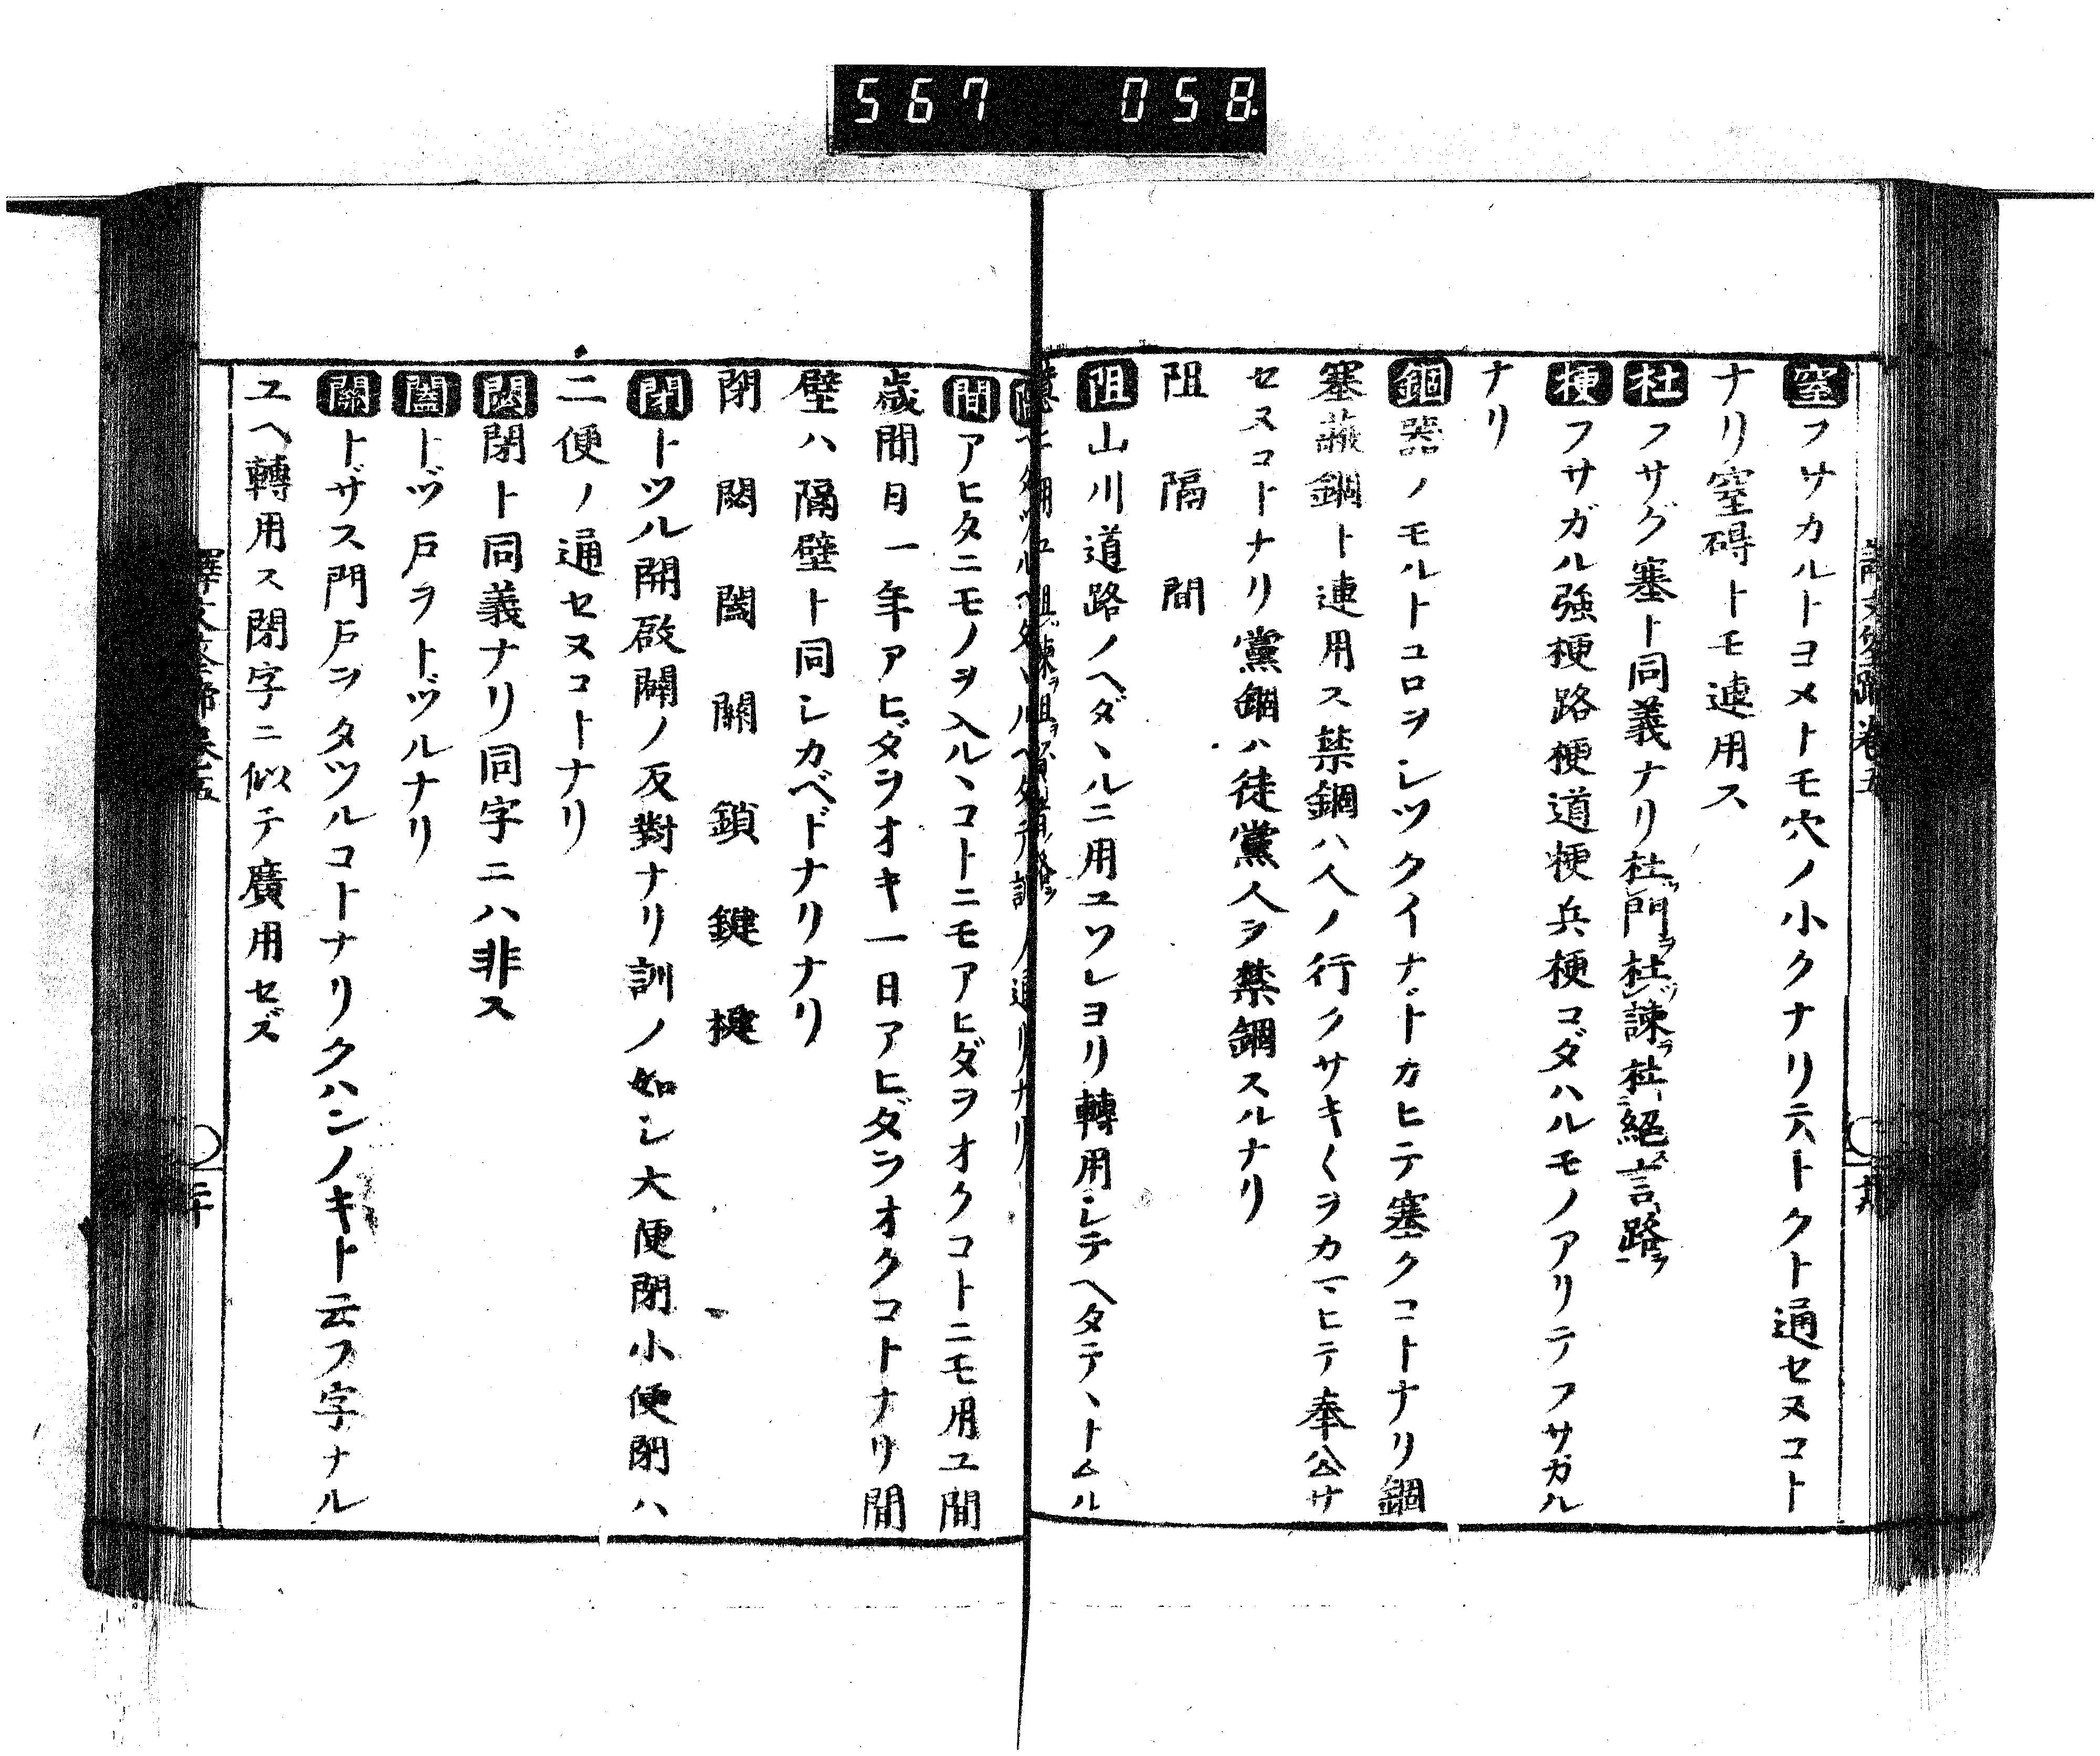 567 058
窒フサカルトヨメトモ穴ノ小クナリテトクト通セヌコト
ナリ窒碍トモ連用ス
杜フサグ塞ト同義ナリ杜門ヲ杜諫ヲ杜絕言路ヲ
梗フサガル強梗路梗道梗兵梗コダハルモノアリテフサガル
ナリ
錮器ノモルトコロヲシツクイナトカヒテ塞クコトナリ錮
塞蔽錮ト連用ス禁錮ハ人ノ行クサキ〱ヲカマヒテ奉公サ
セヌコトナリ黨錮ハ徒黨人ヲ禁錮スルナリ
阻 隔 間
阻山川道路ノヘダヽルニ用ユソレヨリ轉用シテヘタテヽトムル
間アヒタニモノヲ入ルヽコトニモアヒダヲオクコトニモ用ユ間
歲間日一年アヒダヲオキ一日アヒダヲオクコトナリ間
壁ハ隔壁ト同シカベドナリナリ
閉 閎 闔 關 鎖 鍵 楗
閉トツル開啟闢ノ反對ナリ訓ノ如シ大便閉小便閉ハ
二便ノ通セヌコトナリ
閉ト同義ナリ同字ニハ非ス
闔トヅ戶ヲトヅルナリ
關トザス門戶ヲタツルコトナリクハンノキト云フ字ナル
ユヘ轉用ス閉字ニ似テ廣用セズ